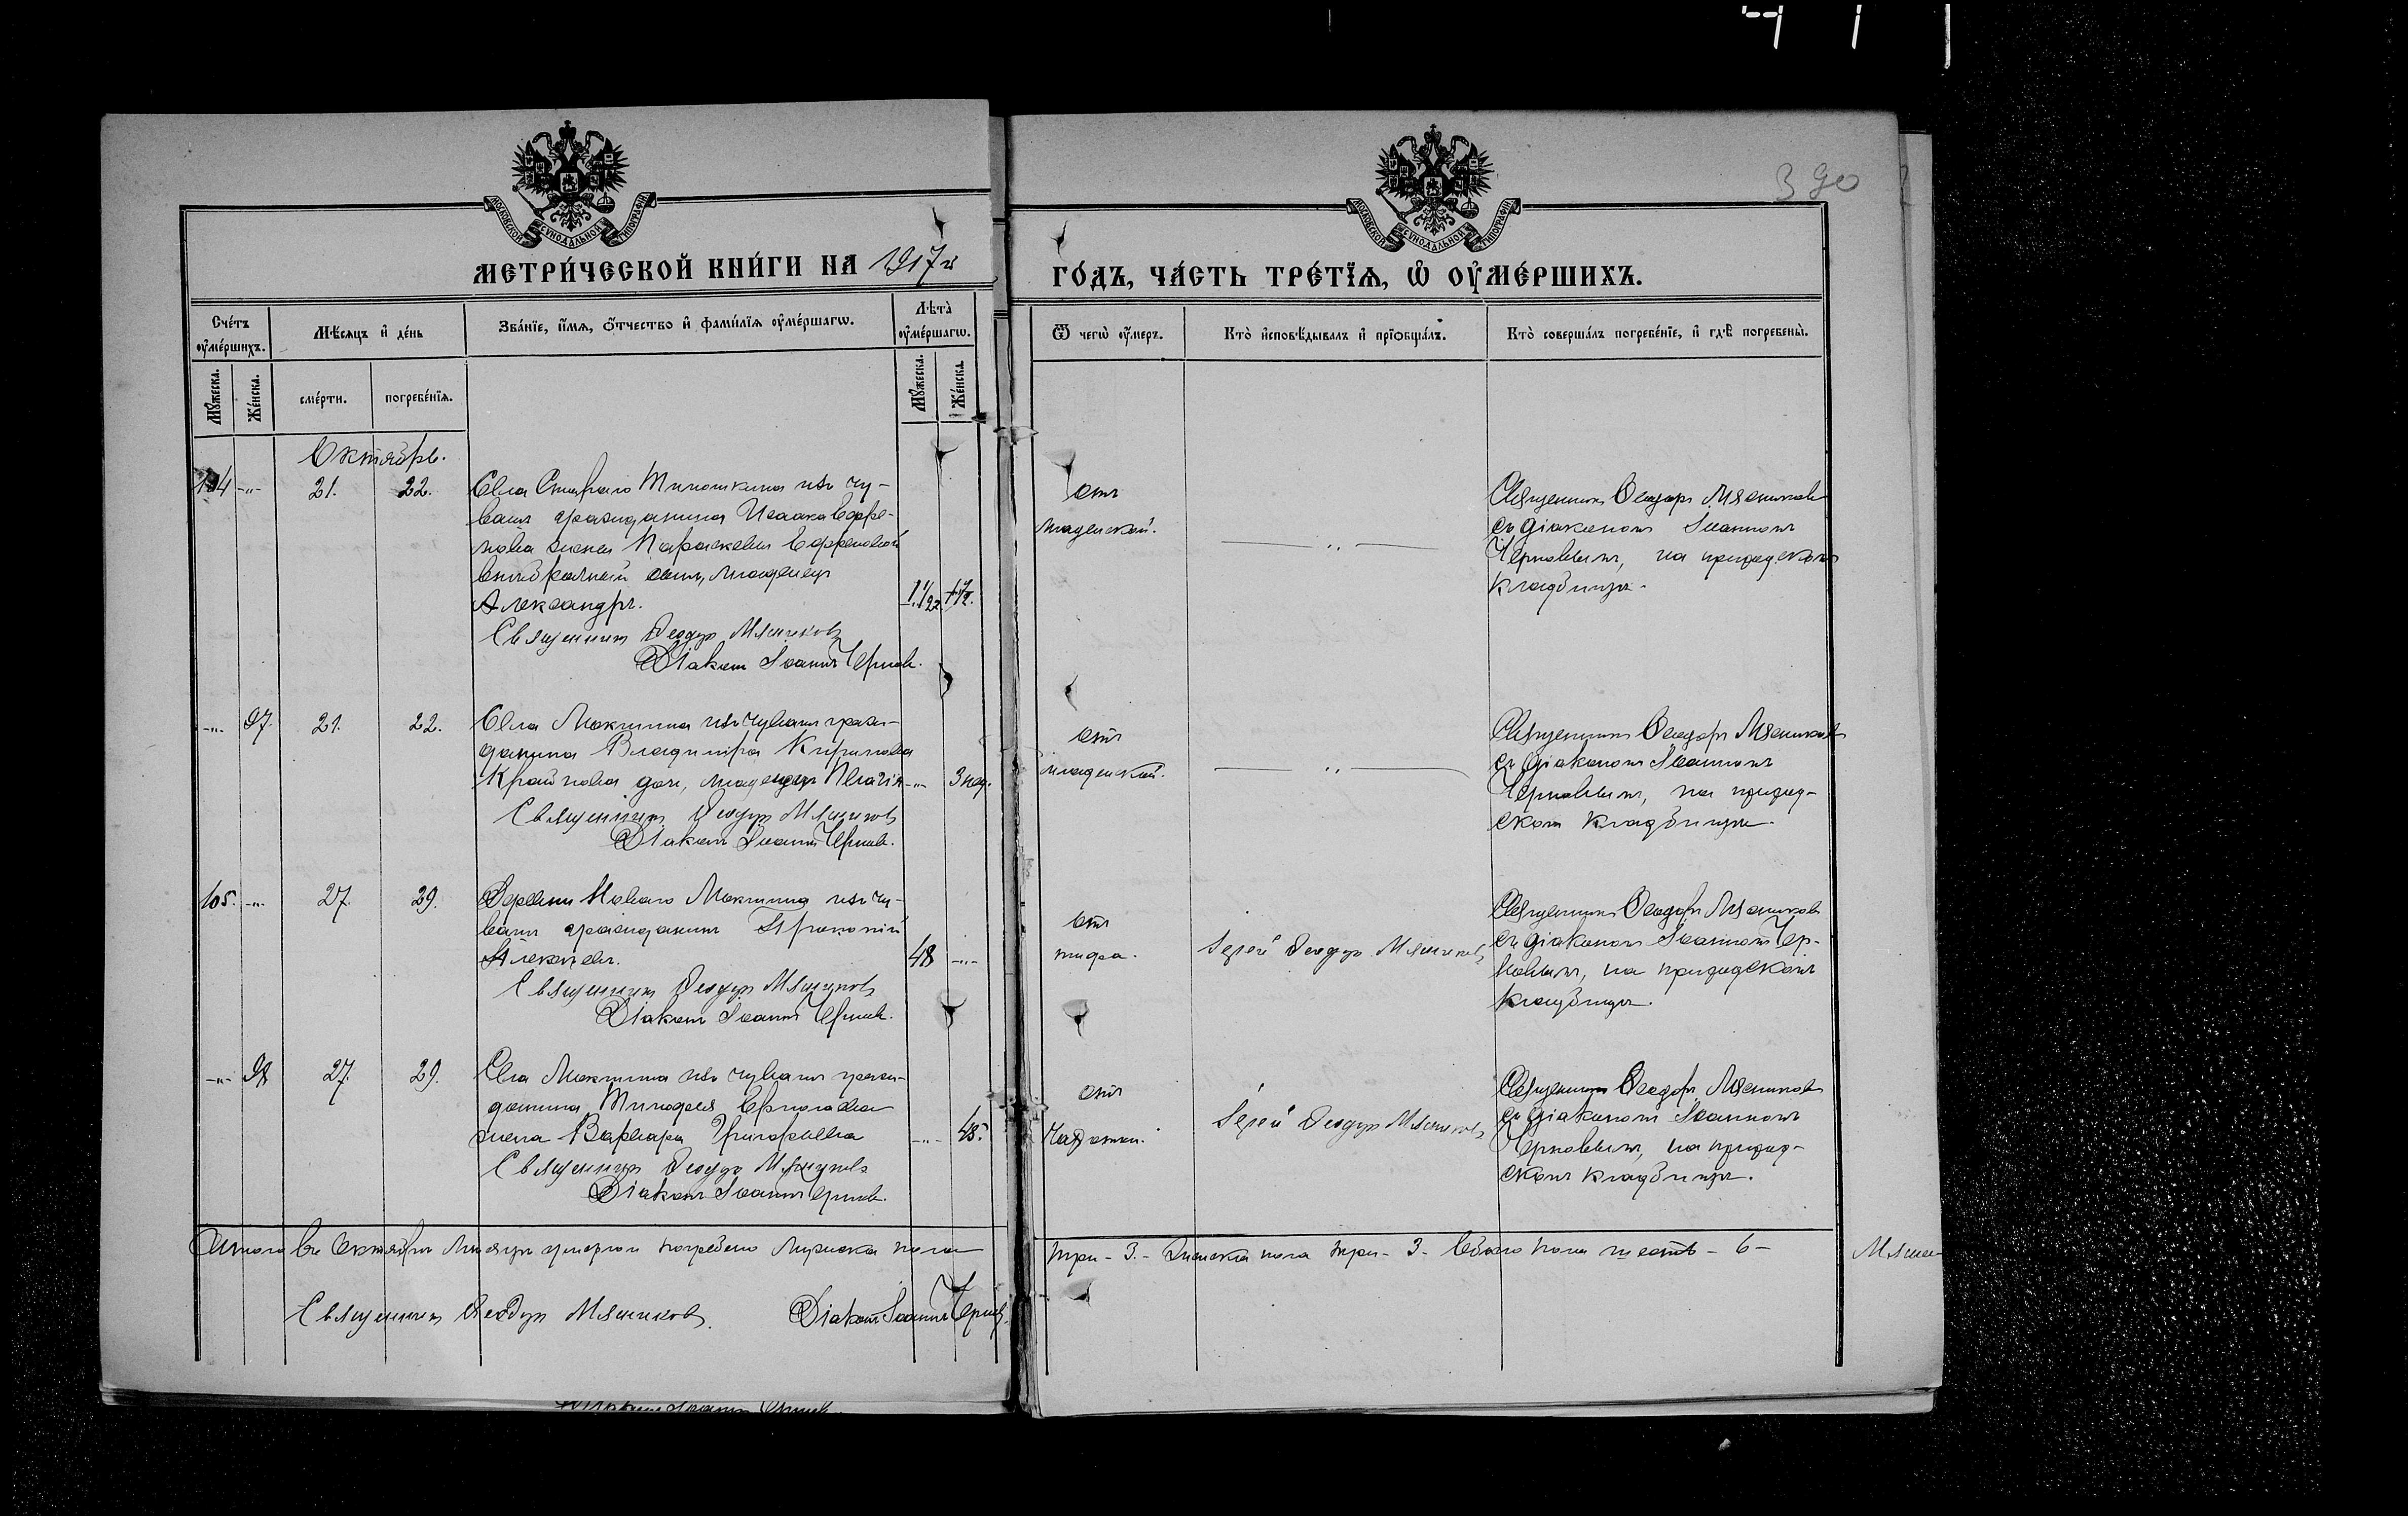 390
МОСКОВСКОЙ СѴНОДАЛЬНОЙ ТИПОГРАФІИ
МОСКОВСКОЙ СѴНОДАЛЬНОЙ ТИПОГРАФІИ
МЕТРИ́ЧЕСКОЙ КНИ́ГИ НА 1917 г
ГО́ДЪ, ЧА́СТЬ ТРЕ́ТЇѦ, Ѡ҆ ОУ҆МЕ́РШИХЪ.
Сче́тъ оу҆ме́ршихъ.
Мꙋ́жеска.
Же́нска.
Мѣ́сѧцъ и҆ де́нь
сме́рти.
погребе́нїѧ.
Зва́нїе, и҆́мѧ, ѻ҆́тчество и҆ фами́лїѧ оу҆ме́ршагѡ.
Лѣ̀та оу҆ме́ршагѡ.
Мꙋ́жеска.
Же́нска.
Ѿ чегѡ̀ оу҆́меръ.
Кто̀ и҆сповѣ́дывалъ и҆ прїѻбща́лъ.
Кто̀ соверша́лъ погребе́нїе, и҆ гдѣ̀ погребены̀.
Октябрь.
104 -"- 21. 22.
Села Стараго Тимошкина изъ чу-
вашъ гражданина Исаака Ефре-
мова жены Параскевы Ефремовой
внѣбрачный сынъ, младенецъ
Александръ.
Священникъ Ѳеодоръ Мясниковъ
Діаконъ Іоаннъ Черновъ.
отъ
младенской.
-"-
Священникъ Ѳеодоръ Мясниковъ
съ діакономъ Іоанномъ
Черновымъ, на приходскомъ
кладбищѣ.
-"- 97. 21. 22.
Села Мокшина изъ чувашъ граж-
данина Владиміра Кирилова
Крайнова дочь, младенецъ Пелагія -"- 3 нед.
Священникъ Ѳеодоръ Мясниковъ
Діаконъ Іоаннъ Черновъ.
отъ
младенской.
-"-
Священникъ Ѳеодоръ Мясниковъ
съ діакономъ Іоанномъ
Черновымъ, на приход-
скомъ кладбищѣ.
105. -"- 27. 29.
Деревни Новаго Мокшина изъ чу-
вашъ гражданинъ Прокопій
Алексѣевъ. 48 -"-
Священникъ Ѳеодоръ Мясниковъ
Діаконъ Іоаннъ Черновъ.
отъ
тифа.
Іерей Ѳеодоръ Мясниковъ
Священникъ Ѳеодоръ Мясниковъ
съ діакономъ Іоанномъ Чер-
новымъ, на приходскомъ
кладбищѣ.
-"- 98 27. 29.
Села Мокшина изъ чувашъ граж-
данина Тимофея Ермолаева
жена Варвара Григорьева -"- 45.
Священникъ Ѳеодоръ Мясниковъ
Діаконъ Іоаннъ Черновъ.
отъ
чахотки.
Іерей Ѳеодоръ Мясниковъ
Священникъ Ѳеодоръ Мясниковъ
съ діакономъ Іоанномъ
Черновымъ, на приход-
скомъ кладбищѣ.
Итого въ Октябрѣ мѣсяцѣ умершихъ погребено мужеска пола
три - 3. - Женска пола три - 3 - Обоего пола шесть - 6 -
Священникъ Ѳеодоръ Мясниковъ. Діаконъ Іоаннъ Черновъ.